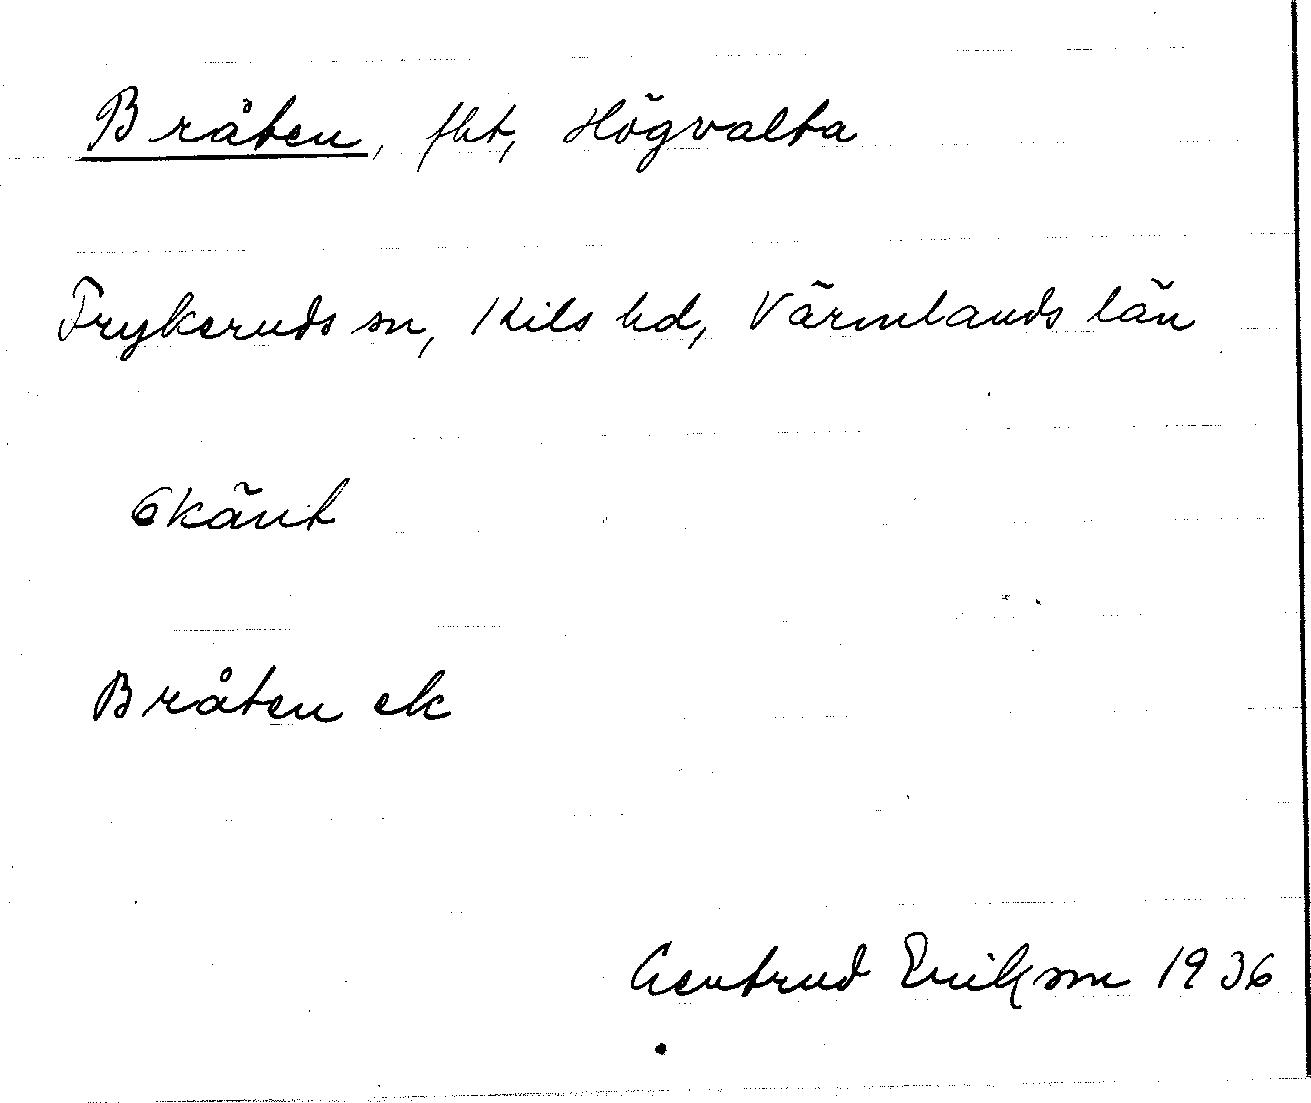 Bråten, fht, Högvalta
Frykeruds sn, Kils hd, Värmlands län
Okänt
Bråten ek
Gertrud Erikson 1936